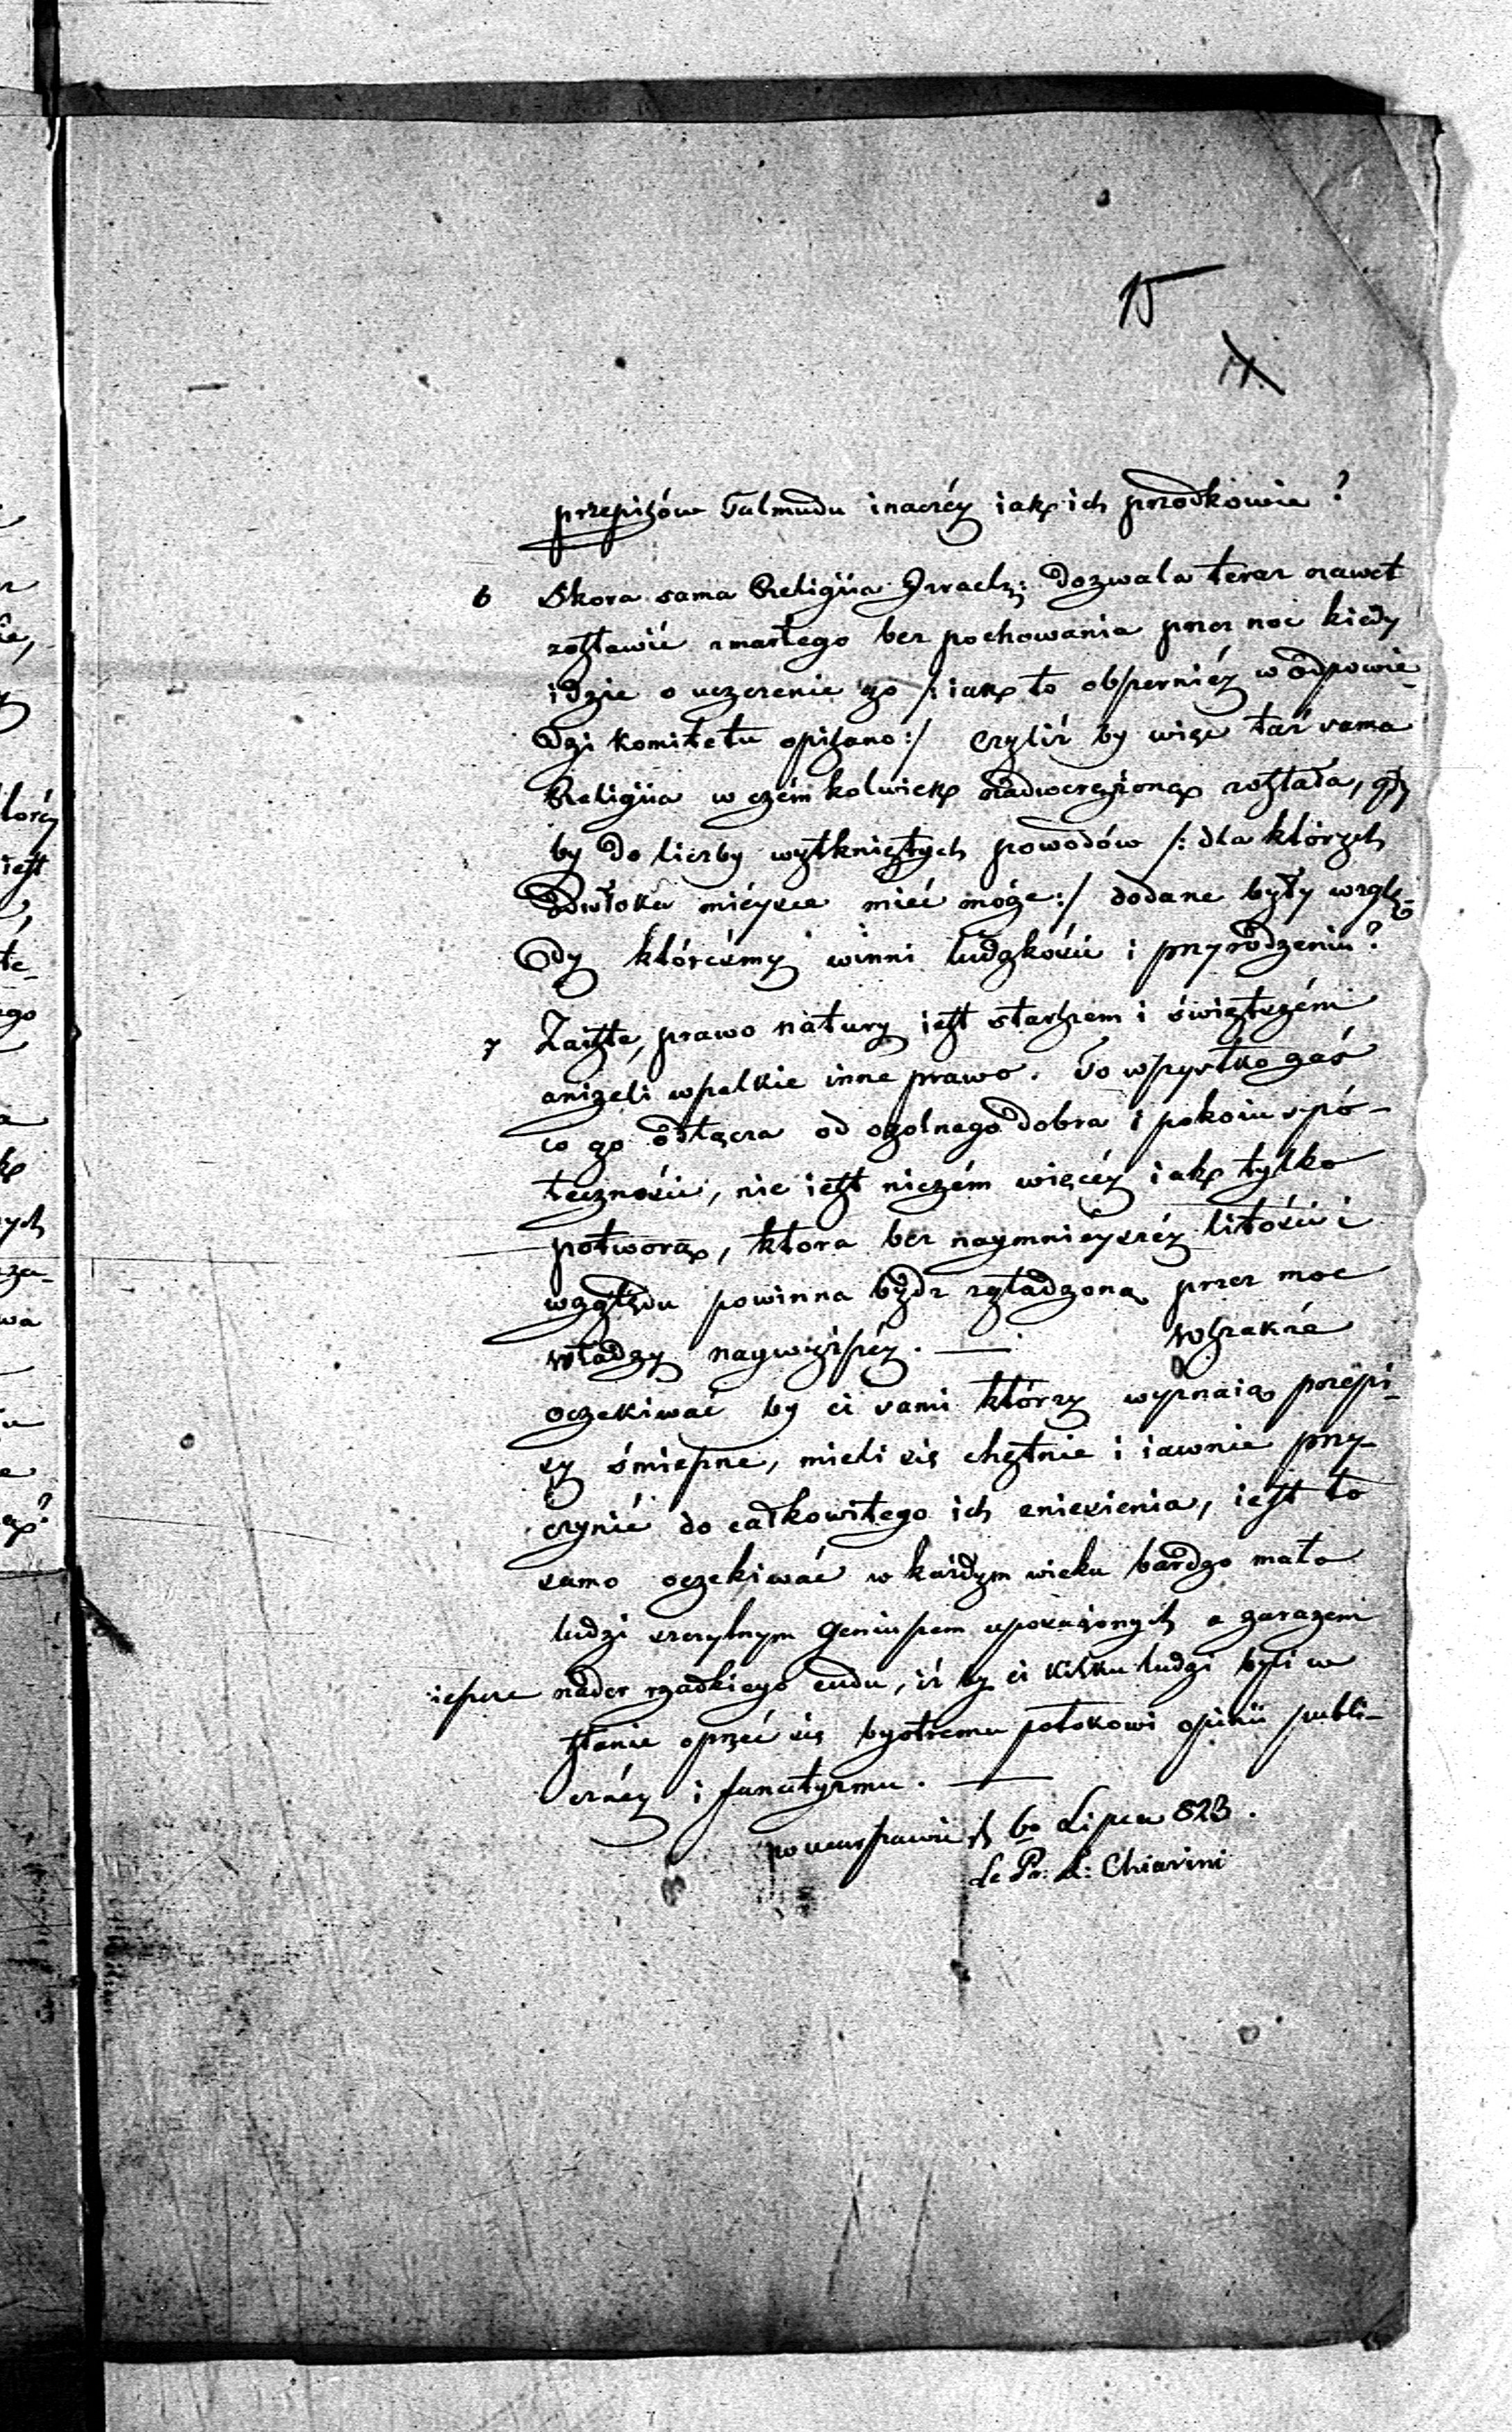 15
11.
przepisów Talmudu inaczéy iak ich przodkowie?
6 Skoro sama Religiia Izraels: dozwala teraz nawet
zostawić zmarłego bez pochowania przez noc kiedy
idzie o uczczenie go /: iak to obszerniéy w odpowie-
dzi komitetu opisano:/ czyliż by więc taż sama
Religiia w czémkolwiek nadwerężoną została, gdy
by do liczby wytkniętych powodów /: dla których
odwłoka miéysce mieć może:/ dodane były wzglę-
dy któreśmy winni ludzkości i przyrodzeniu?
7 Zaiste, prawo natury iest starszem i świętszém
aniżeli wszelkie inne prawo. To wszystko zaś
co go odłącza od ogolnego dobra i pokoiu spó-
łeczności, nie iest niczém więcéy iak tylko
potworą, ktora bez naymnieyszéy litości i
względu powinna bydz zgładzoną przez moc
władzy naywyższéy. — Wszakże
oczekiwać by ci sami którzy wyznaią przepi-
sy śmieszne, mieli się chętnie i iawnie przy-
czynić do całkowitego ich zniesienia, iest to
samo oczekiwać w każdym wieku bardzo mało
ludzi szczytnym Geniuszem uposażonych a zarazem
ieszcze nader rzadkiego cudu, iż by ci kilku ludzi byli w
stanie oprzéć się bystremu potokowi opinii publi-
cznéy i fanatyzmu. —
w Warszawie d 6o Lipca 823.
Le Pr. L: Chiarini